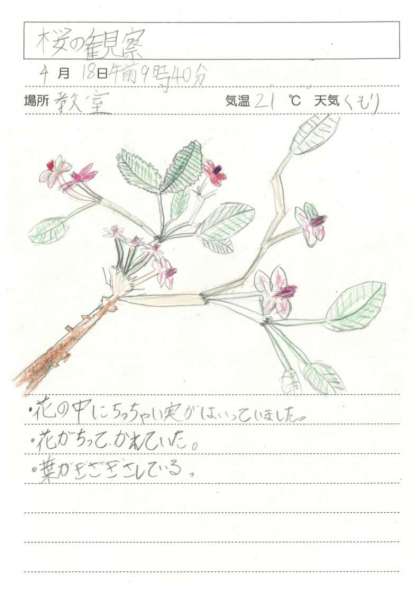 桜の観察
4月18日午前9時40分
場所 教室 気温 21℃ 天気 くもり
・花の中にちっちゃい実がはいっていました。
・花がちって、かれていた。
・葉がぎざぎざしている。